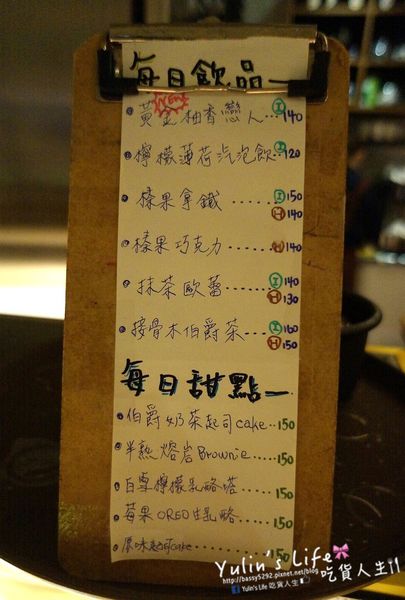 每日飲品
NEW
黃金柚香戀人... I 140
檸檬薄荷汽泡飲 I 120
榛果拿鐵...... I 150
H 140
榛果巧克力...... H 140
抹茶歐蕾...... I 140
H 130
接骨木伯爵茶... I 160
H 150
每日甜點
伯爵奶茶起司cake..150
半熟熔岩Brownie....150
白雪檸檬乳酪塔....150
莓果OREO生乳酪....150
原味起司cake......150
Yulin's Life
http://bassy5292.pixnet.net/blog
Yulin's Life 吃貨人生
吃貨人生!!
Yulin's Life
吃貨人生!!